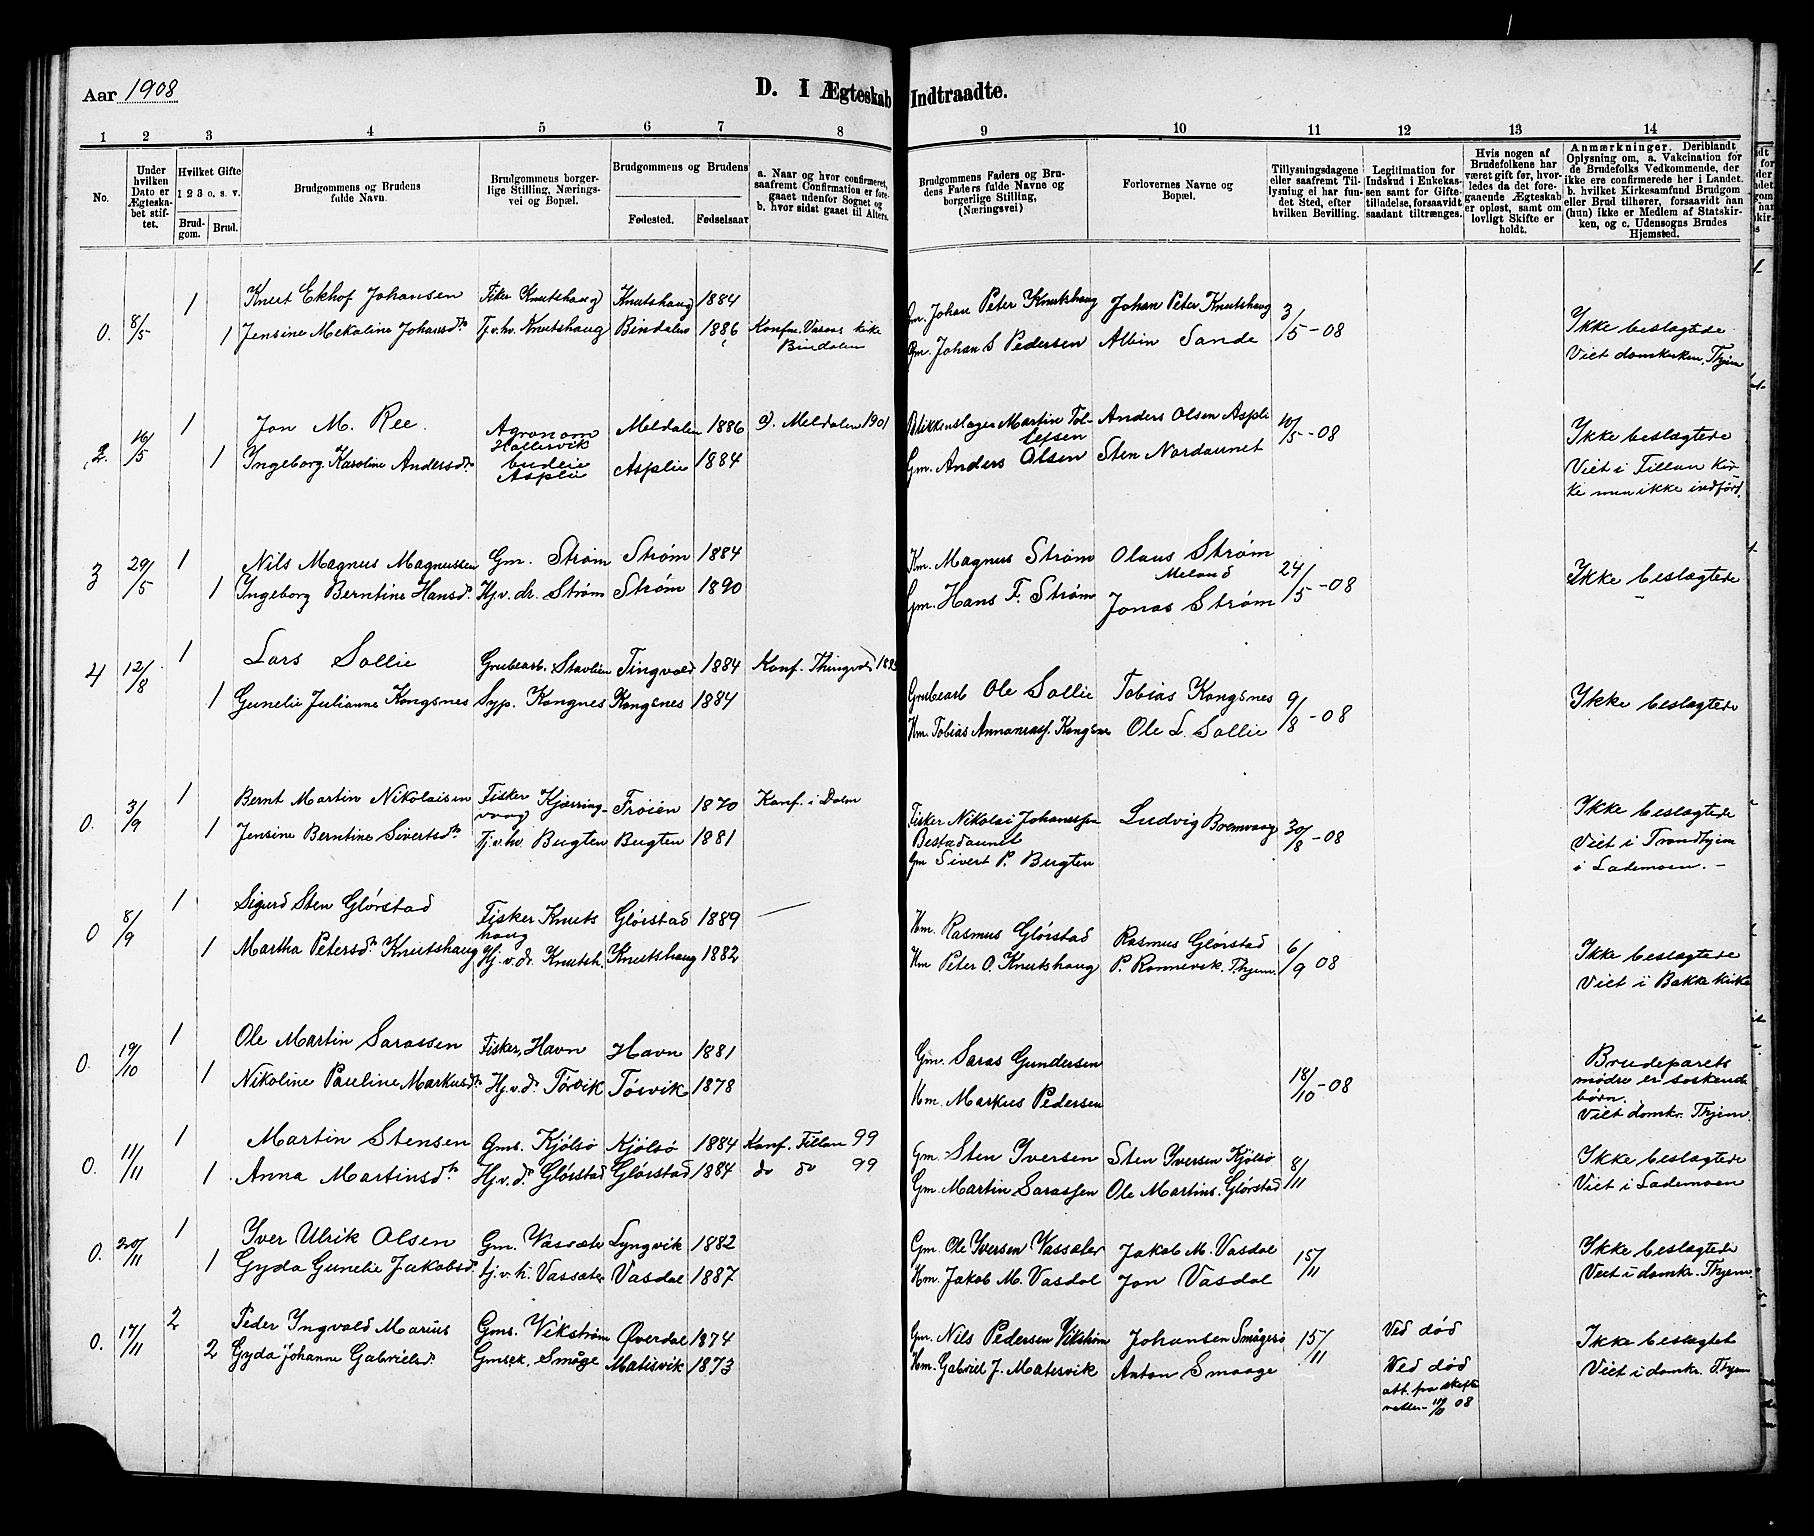 Aar 1908
D. I Ægteskab Indtraadte.
1 2 3 4 5 6 7 8 9 10 11 12 13 14
No.
Under hvilken Dato er Ægteskabet stiftet.
Hvilket Gifte 1 2 3 o. s. v.
Brudgom. Brud.
Brudgommens og Brudens fulde Navn.
Brudgommens borgerlige Stilling, Næringsvei og Bopæl.
Brudgommens og Brudens
Fødested. Fødselsaar
a. Naar og hvor confirmeret, saafremt Confirmation er foregaaet udenfor Sognet og b. hvor sidst gaaet til Alters.
Brudgommens Faders og Brudens Faders fulde Navne og borgerlige Stilling, (Næringsvei)
Forlovernes Navne og Bopæl.
Tillysningsdagene eller saafremt Tillysning ei har fundet Sted, efter hvilken Bevilling.
Legitimation for Indskud i Enkekassen samt for Giftetilladelse, forsaavidt saadant tiltrænges.
Hvis nogen af Brudefolkene har været gift før, hvorledes da det foregaaende Ægteskab er opløst, samt om lovligt Skifte er holdt.
Anmærkninger. Deriblandt Oplysning om, a. Vakcination for de Brudefolks Vedkommende, der ikke ere confirmerede her i Landet. b. hvilket Kirkesamfund Brudgom eller Brud tilhører, forsaavidt han (hun) ikke er Medlem af Statskirken, og c. Udensogns Brudes Hjemsted.
0. 8/5 1 Knut Ekhof Johansen Fisker Knutshaug Knutshaug 1884 Gm. Johan Peter Knutshaug Johan Peter Knutshaug 3/5-08 Ikke beslægtede
1 Jensine Mekaline Johansdt Tj.v.hv. Knutshaug Bindalen 1886 Konfm. Bindalen Gm. Johan S Pedersen Albin Sande Viet domkirken. Thjem
2. 16/5 1 Jon M. Ree. Agronom Hallesvik Meldalen 1886 a). Meldalen 1901 Blikkenslager Martin Tollefsen Anders Olsen Aspli 10/5-08 Ikke beslægtede
1 Ingeborg Karoline Andersdt budeie Asplie Asplie 1884 Gm. Anders Olsen Sten Nordaunet Viet i Fillan Kirke men ikke indført.
3 29/5 1 Nils Magnus Magnussen Gm. Strøm Strøm 1884 Km. Magnus Strøm Olaus Strøm Meland 24/5-08 Ikke beslægtede
1 Ingeborg Berntine Hansd. Hj.v.dr. Strøm Strøm 1890 Gm. Hans F. Strøm Jonas Strøm
4 12/8 1 Lars Sollie Grubearb. Stavlien Tingvold 1884 Konf. Thingvold Grubearb Ole Sollie Tobias Kongsnes 9/8-08 Ikke beslægtede
1 Gunelie Julianne Kongsnes Syp. Kongnes Kongsnes 1884 Hm. Tobias Kongsnes Ole L. Sollie
0. 3/9 1 Bernt Martin Nikolaisen Fisker Kjærringvaag Frøien 1870 Konf. i Dolm Fisker Nikolai Johanssen Bestedaunet Ludvig Bremvaag 30/8-08 Ikke beslægtede
1 Jensine Berntine Sivertsdt Tj.v.hv. Bugten Bugten 1881 Gm Sivert P. Bugten Viet i Trondhjem i Lademoen. -
0 8/9 1 Sigurd Sten Glørstad Fisker Knutshaug Glørstad 1889 — Hm. Rasmus Glørstad Rasmus Glørstad 6/9 08 Ikke beslægtede
1 Martha Petersdt Knutshaug Hj.v.dr. Knutsh. Knutshaug 1882 Hm Peter O. Knutshaug Viet i Bakke kirke
0. 19/10 1 Ole Martin Sarassen Fisker, Havn Havn 1881 Gm. Saras Gundersen 18/10-08 Brudeparets mødre er søskendebørn.
1 Nikoline Pauline Markusdt Hj.v.dr Tørvik Tørvik 1878 Hm. Markus Pedersen Viet domkr. Thjem.
0. 11/11 1 Martin Stensen Gms. Kjølsø Kjølsø 1884 Konf. Fillan 99 Gm. Sten Iversen Sten Iversen Kjølsø 8/11 Ikke beslægtede
1 Anna Martinsdt Hj.v.dr Glørstad Glørstad 1884 do do 99 Gm. Martin Sarassen Ole Martins. Glørstad Viet i Lademoen
0. 20/11 1 Iver Ulrik Olsen Gm. Vassæter Lyngvik 1882 Gm. Ole Iversen Vassæter Jakob M. Vasdal 15/11 Ikke beslægtede
1 Gyda Gunelie Jakobsd. tj.v.h. Vassæter Vasdal 1887 Hm. Jakob M. Vasdal Jon Vasdal Viet i domkr. Thjem.
0. 17/11 2 Peder Ingvald Marius Gms. Vikstrøm Øverdal 1874 Gm. Nils Pedersen Vikstrøm Johansen Smågesø 15/11 Ved død Ikke beslægtet
2 Gyda Johanne Gabrielsd. Gmsek. Smøge Matisvik 1873 Hm. Gabriel J. Matesvik Anton Smaage Ved død att. fra skifteretten 08 Viet i domkr. Thjem